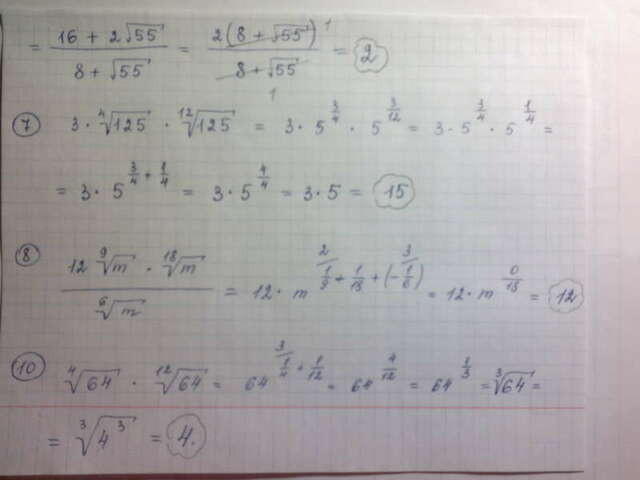 = (16 + 2√55)/(8 + √55) = 2(8 + √55)¹/(8 + √55)₁ = 2
7 3 · ⁴√125 · ¹²√125 = 3 · 5^(3/4) · 5^(3/12) = 3 · 5^(3/4) · 5^(1/4) =
= 3 · 5^(3/4 + 1/4) = 3 · 5^(4/4) = 3 · 5 = 15
8 (12 ⁹√m · ¹⁸√m)/(⁶√m) = 12 · m^(²⁄1/9 + 1/18 + (-³⁄1/6)) = 12 · m^(0/18) = 12
10 ⁴√64 · ¹²√64 = 64^(³⁄1/4 + 1/12) = 64^(4/12) = 64^(1/3) = ³√64 =
= ³√4³ = 4.